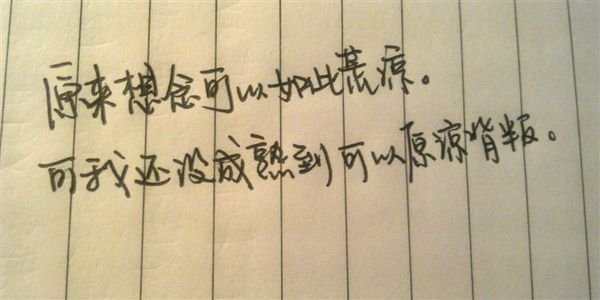 原来想念可以如此荒凉。
可我还没成熟到可以原谅背叛。